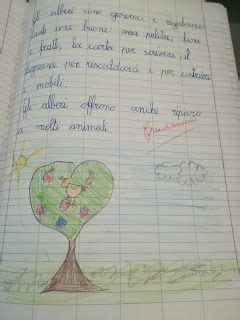 Gli alberi sono generosi e regalano
tante cose buone: aria pulita, fiori
e frutti, la carta per scrivere, il
legname per riscaldarci e per costruire
i mobili.
Gli alberi offrono anche riparo
a molti animali.
Bravissimo